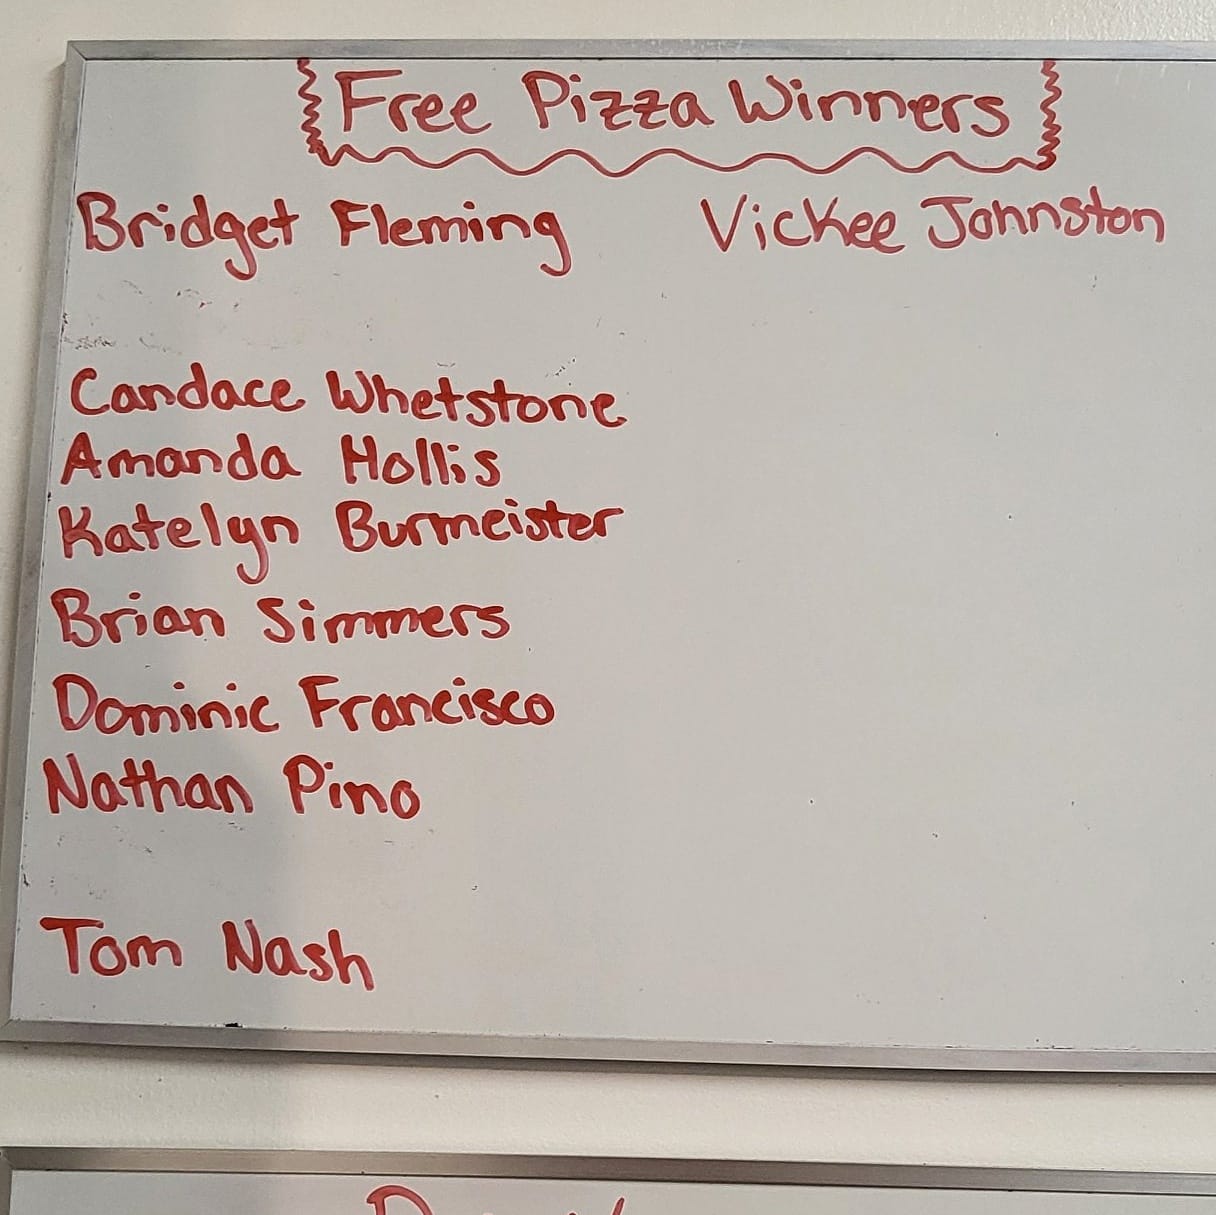 Free Pizza Winners
Bridget Fleming
Vickee Johnston
Candace Whetstone
Amanda Hollis
Katelyn Burmeister
Brian Simmers
Dominic Francisco
Nathan Pino
Tom Nash